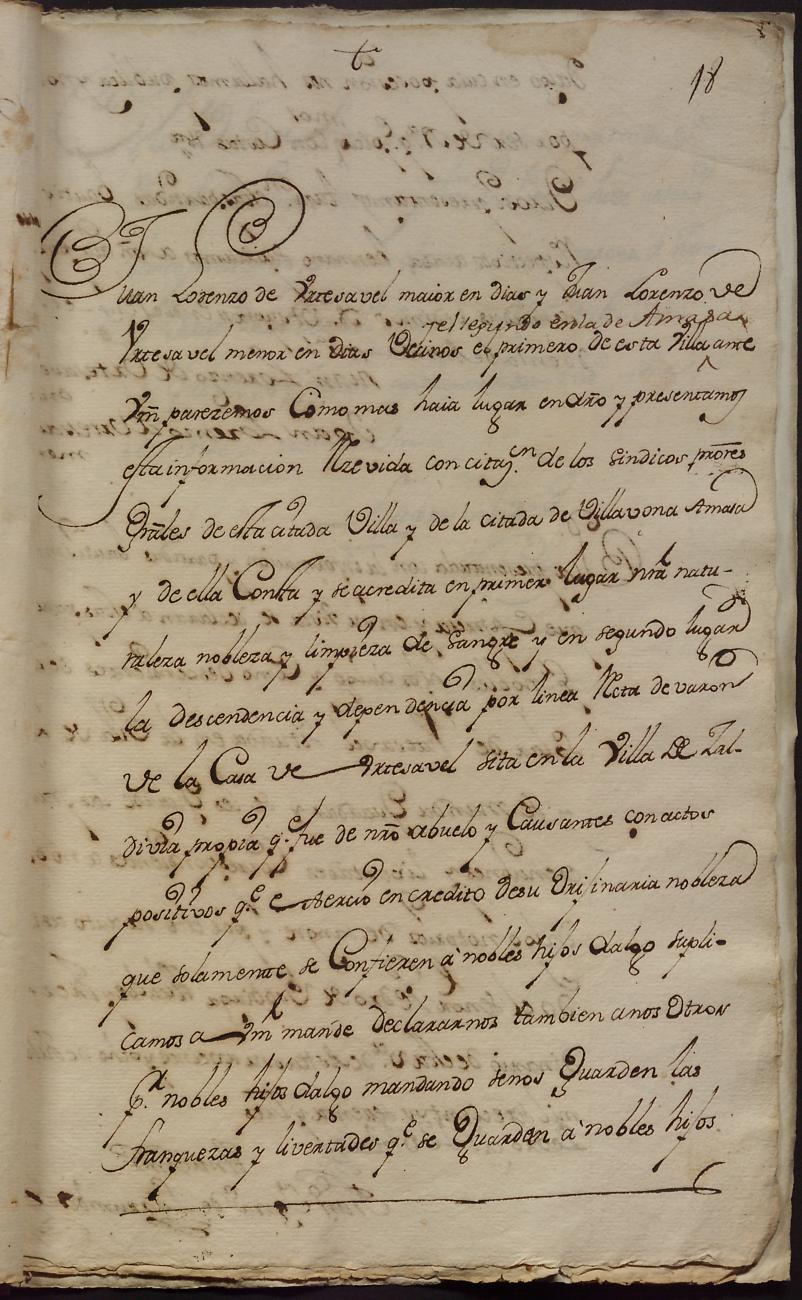 18
Juan Lorenzo de Yrtesavel maior en dias y Juan Lorenzo de
y el segundo en la de Amasa
Yrtesavel menor en dias Vecinos el primero de esta Villa ante
Vm̃ parezemos Como mas haia lugar en dr̃o y presentamos
esta informacion Rezevida con citaz.on de los Sindicos prores
Grãles de esta citada Villa y de la citada de Villavona Amasa
y de ella Consta y se acredita en primer lugar nr̃a natu-
raleza nobleza y limpieza de Sangre y en segundo lugar
la descendencia y dependencia por linea Recta de varon
de la Casa de Yrtesavel sita en la Villa de Zal-
divia propia q.e fue de nr̃o abuelo y Causantes con actos
positivos q.e exercio en credito de su Orijinaria nobleza
que solamente se Confieren à nobles hijos dalgo supli-
camos a Vm̃ mande declararnos tambien a nos Otros
p.r nobles hijos dalgo mandando se nos Guarden las
franquezas y livertades q.e se Guarden à nobles hijos